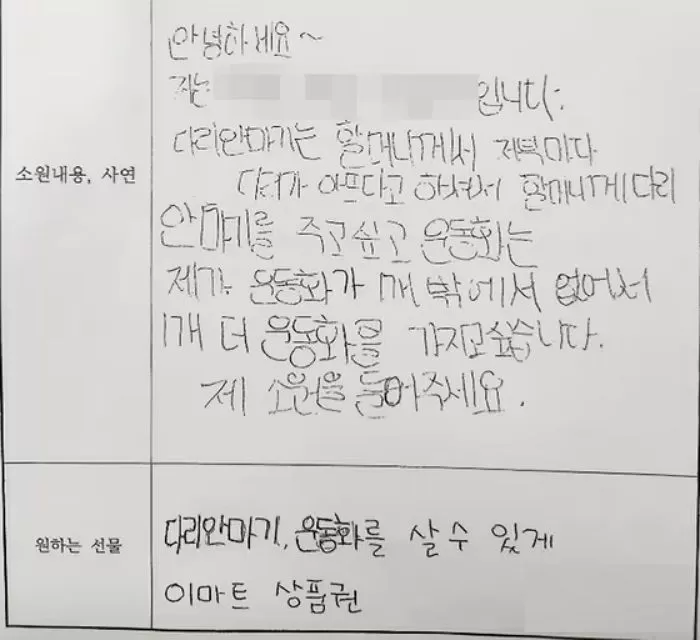 안녕하세요~
저는 입니다.
소원내용, 사연
다리안마기는 할머니께서 저녁마다
다리가 아프다고 하셔서 할머니께 다리
안마기를 주고싶고 운동화는
제가 운동화가 1개 밖에서 없어서
1개 더 운동화를 가지고싶습니다.
제 소원을 들어주세요.
원하는 선물
다리안마기, 운동화를 살 수 있게
이마트 상품권